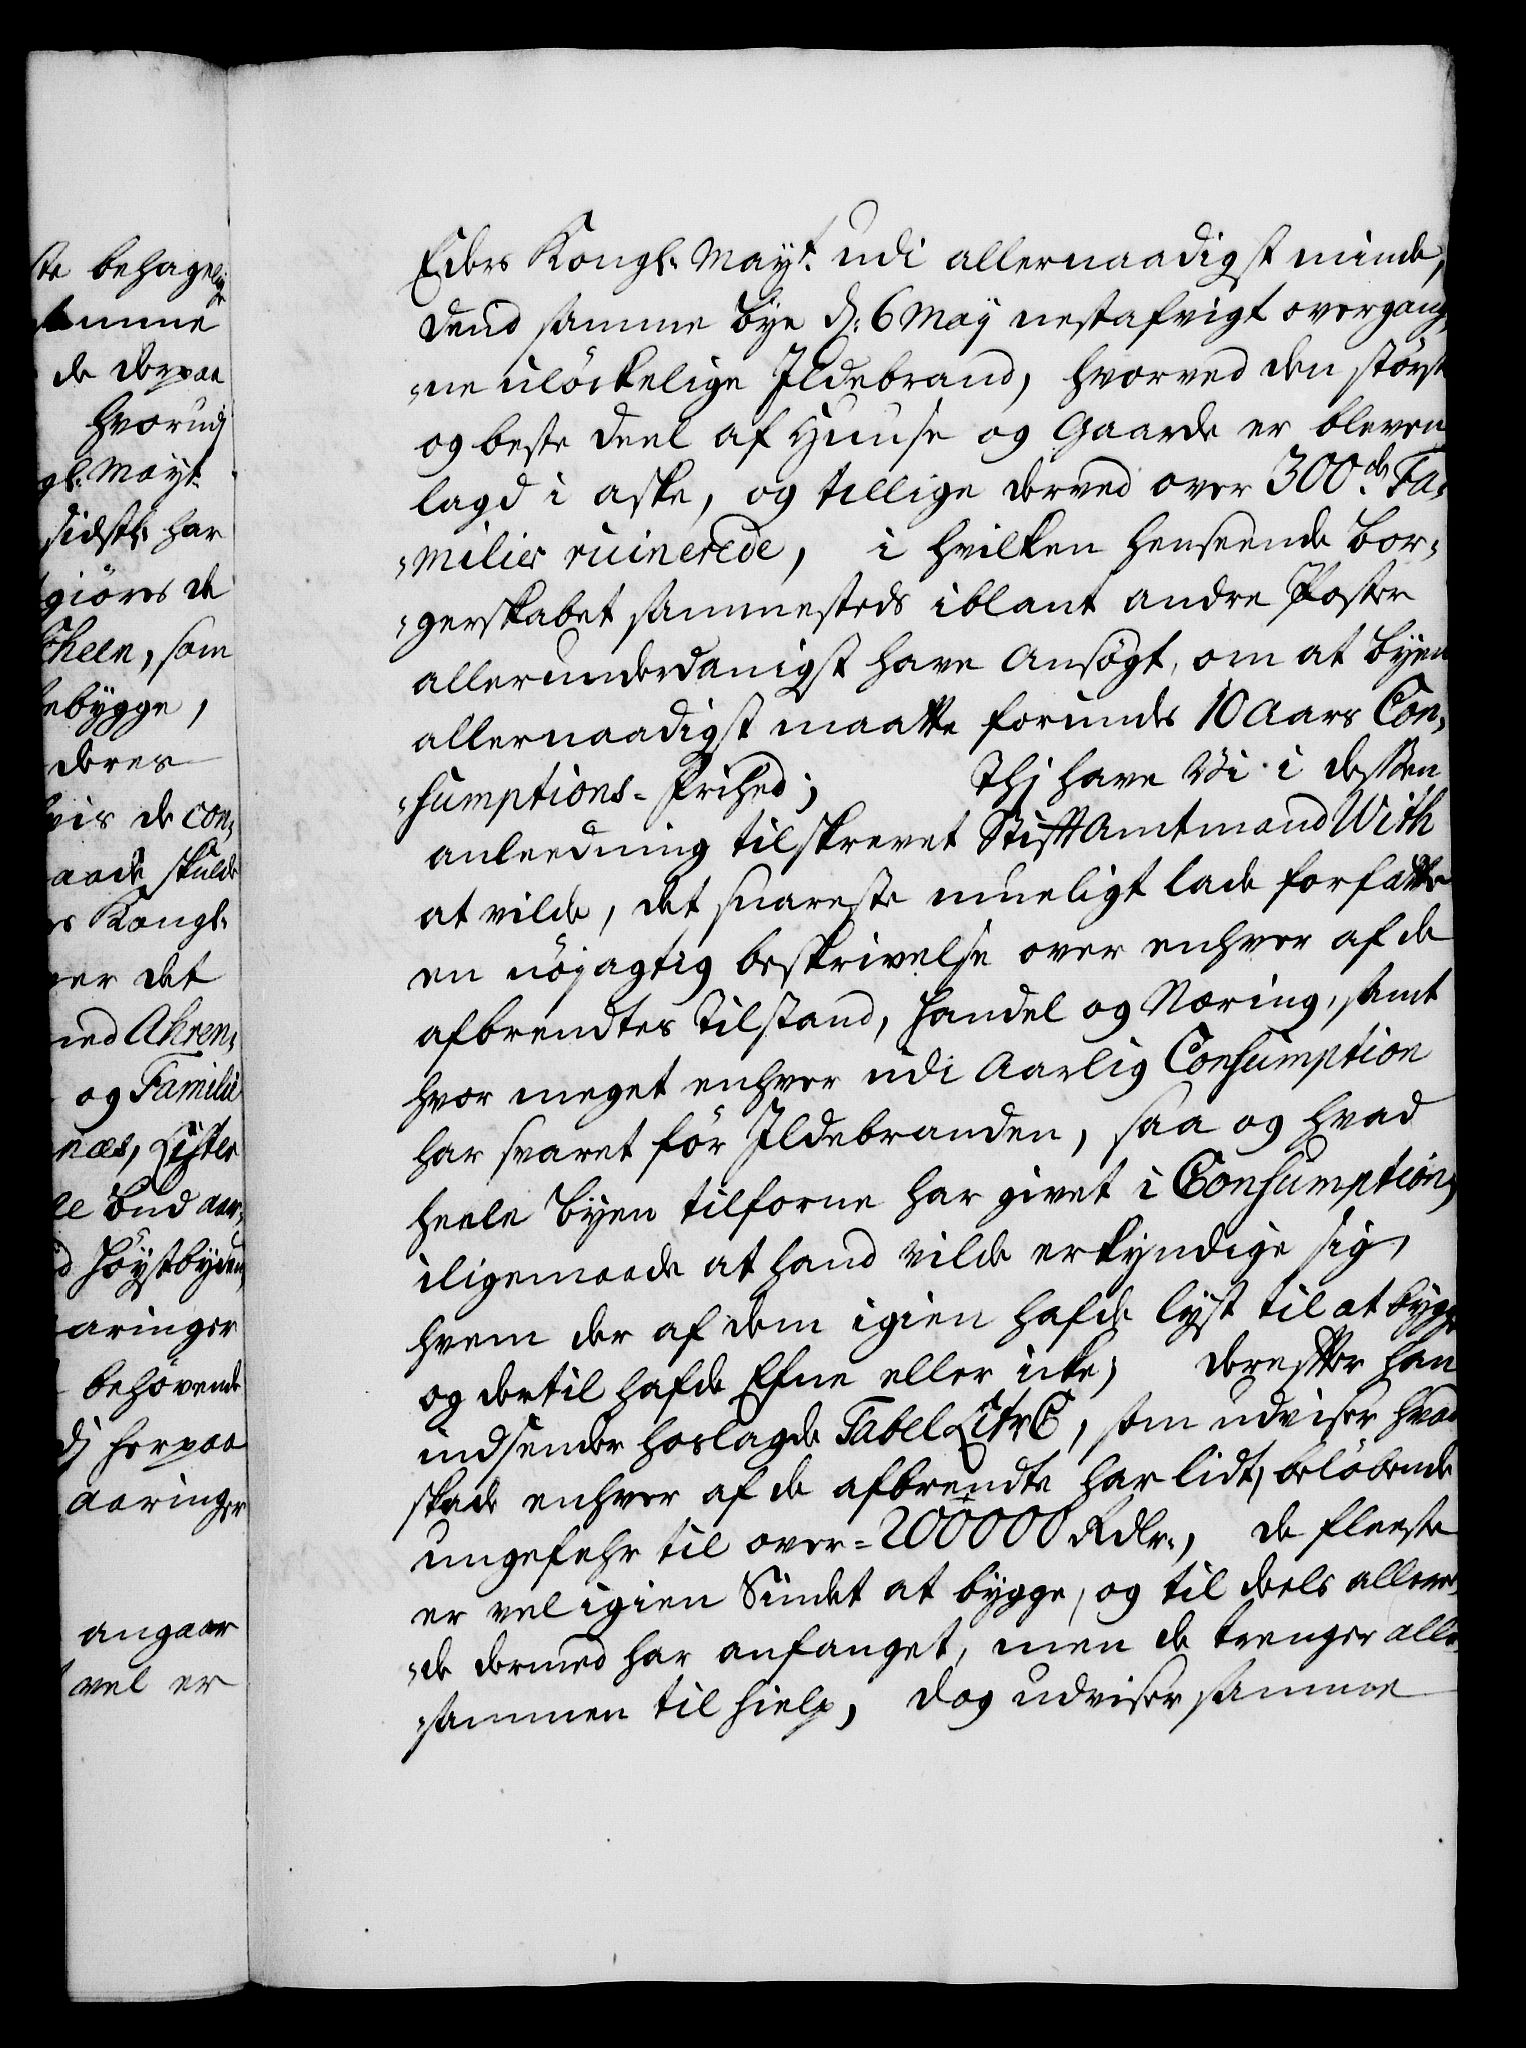 te behagelig
samme
de derpaa
hvorudj
gl: Mayt
sidste: har
giöres de
Kheln, som
bebygge,
deres
vis de con-
aade skulde
rs Kongl:
ver det
ned Ahren-
og Familie
næs, Lister
le Bud aar-
d Höystbyden
aringer
behövende
dj herpaa
aaringer
angaar
vel er
Eders Kongl: Mayt: udi allernaadigst minde,
dend samme Bye d: 6 May nestafvigt overgang-
-ne ulöckelige Ildebrand, hvorved den störste
og beste deel af Huuse og Gaarde er bleven
lagd i aske, og tillige derved over 300de Fa-
-milier ruinerede, i hvilken henseende Bor-
-gerskabet sammesteds iblant andre Poster
allerunderdanigst have ansögt, om at Byen
allernaadigst maatte forundes 10 Aars Con-
-sumptions-Frihed; Thj have Vi i dessen
anleedning tilskrevet StifftAmtmand With
at vilde, det snareste mueligt lade forfatte
en nöjagtig beskrivelse over enhver af de
afbrendtes Tilstand, Handel og Næring, samt
hvor meget enhver udi Aarlig Consumption
har svaret för Ildebranden, saa og hvad
heele Byen tilforne har givet i Consumption,
iligemaade at hand vilde erkyndige sig,
hvem der af dem igien hafde lyst til at bygge
og dertil hafde Efne eller icke; derefter han
indsender hoslagde Tabel Litr C, som udviser hvad
skade enhver af de afbrendte har lidt, beløbende
ungefehr til over = 200000 Rdlr:, de fleeste
er vel igien Sindet at bygge, og til deels allere-
-de dermed har anfanget, men de trenger alle
-sammen til hielp, dog udviser samme